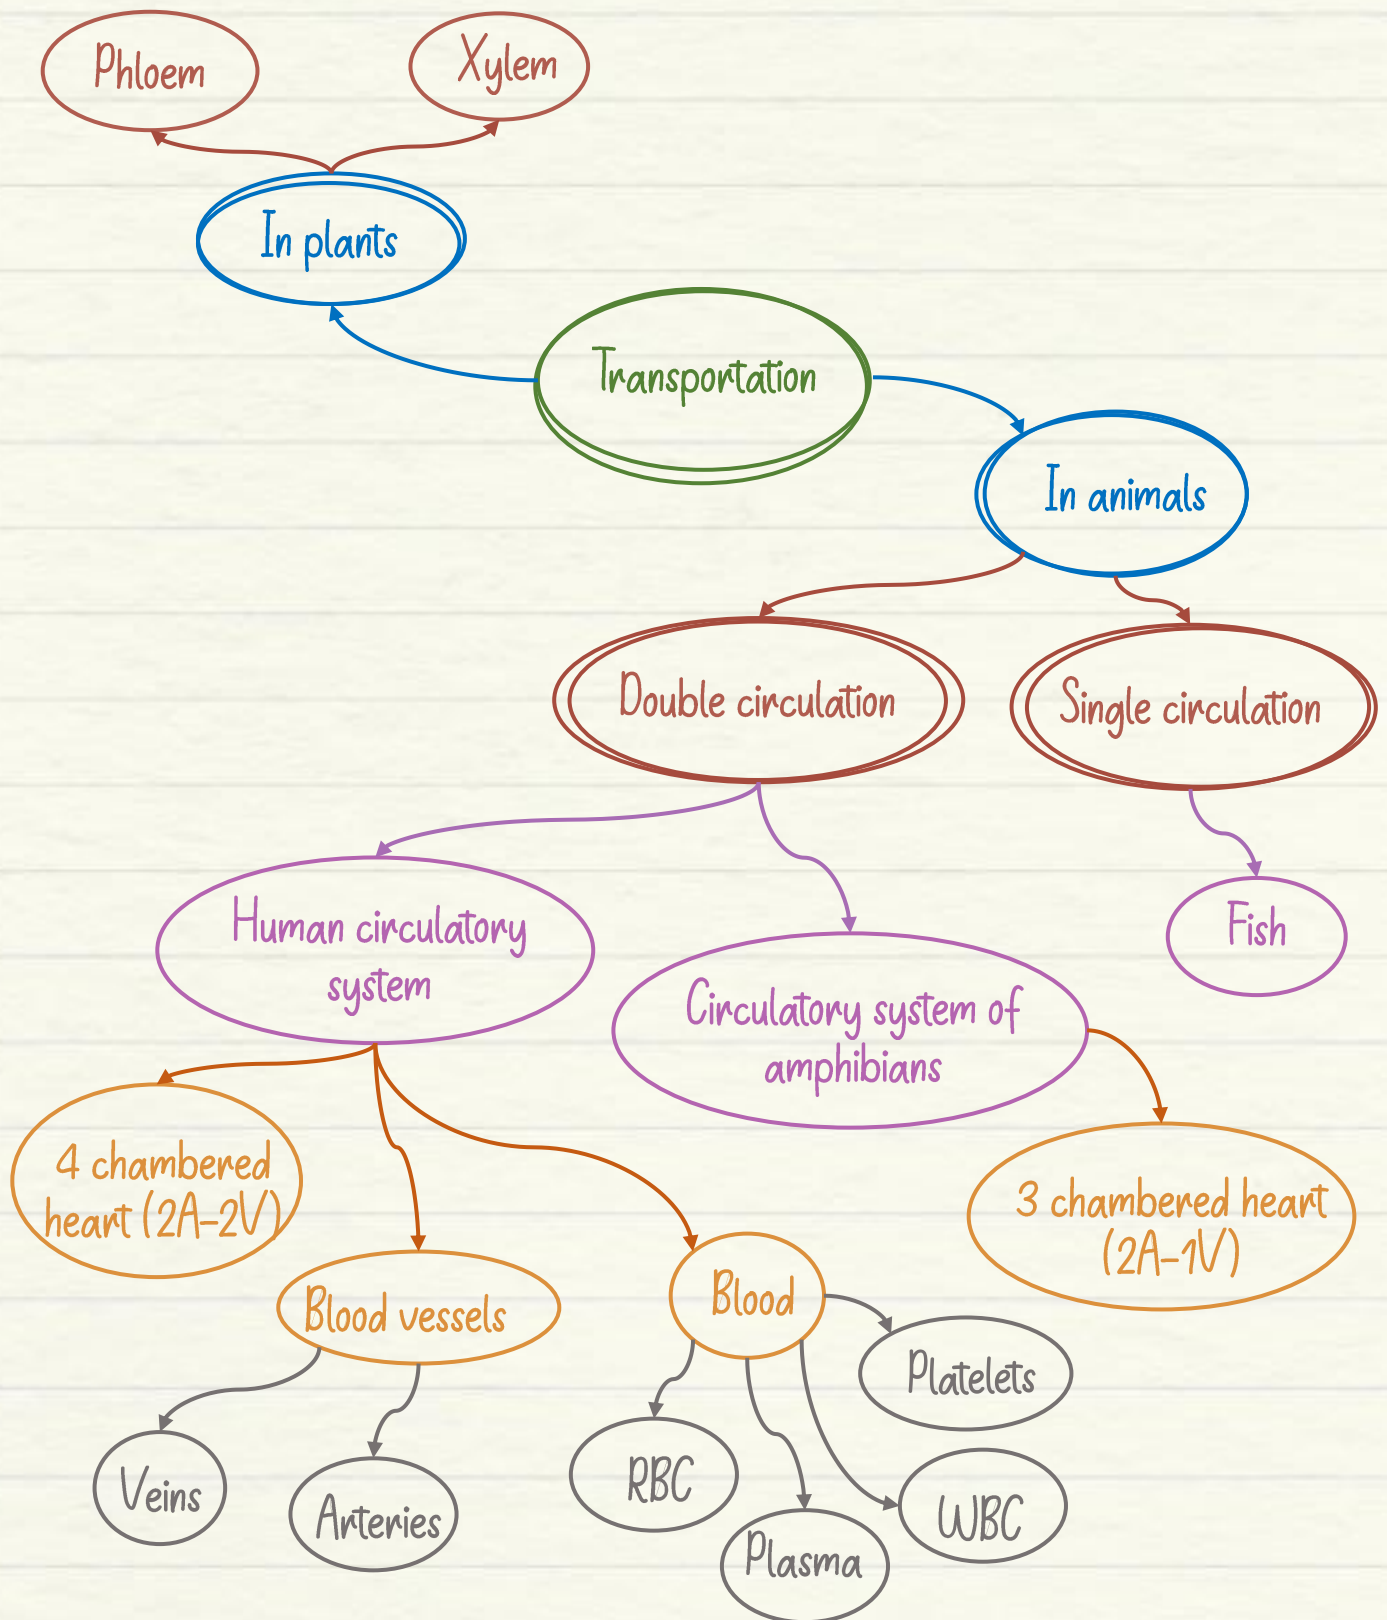 Phloem
Xylem
In plants
Transportation
In animals
Double circulation
Single circulation
Human circulatory
system
Fish
Circulatory system of
amphibians
4 chambered
heart (2A-2V)
3 chambered heart
(2A-1V)
Blood vessels
Blood
Platelets
Veins
Arteries
RBC
WBC
Plasma